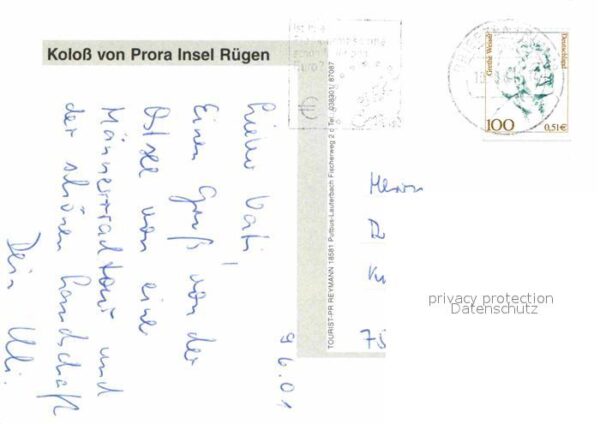 Koloß von Prora Insel Rügen
9.6.01
Lieber Vati!
Einen Gruß von der
Ostsee von eine
Männerradtour und
der schönen Landschaft
Dein Uli.
TOURIST-PR REYMANN 18581 Putbus-Lauterbach Fischerweg 2 c Tel. 038301/87087
Grethe Weiser
Deutschland
100
0,51€
Herrn
75
privacy protection
Datenschutz